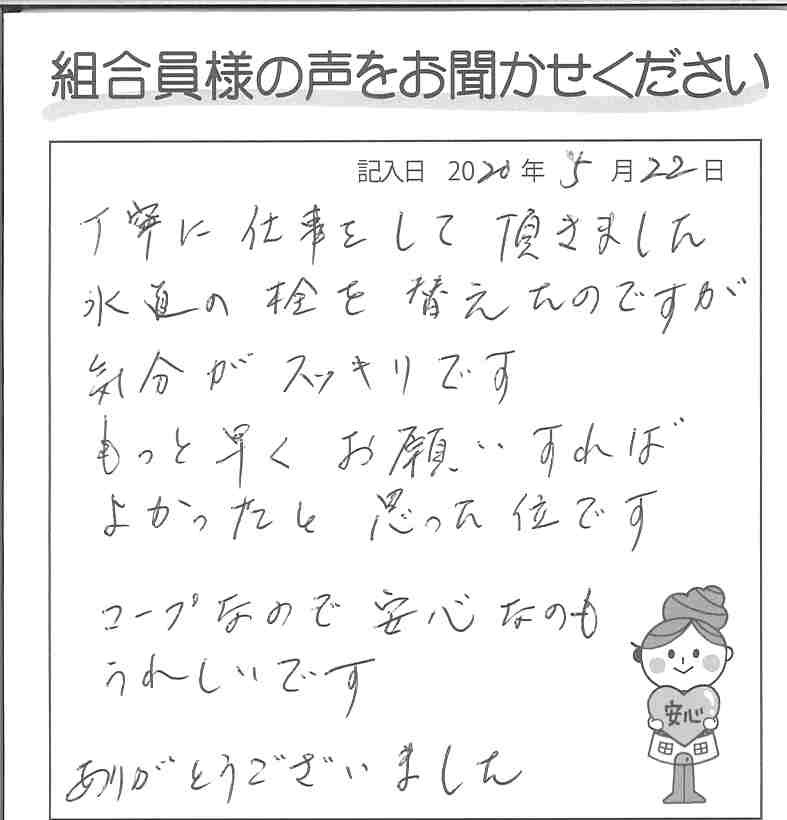 組合員様の声をお聞かせください
記入日 2020年 5月22日
丁寧に 仕事をして 頂きました
水道の 栓を 替えたのですが
気分が スッキリです
もっと早く お願いすれば
よかったと 思った位です
コープなので 安心なのも
うれしいです
ありがとうございました
安心